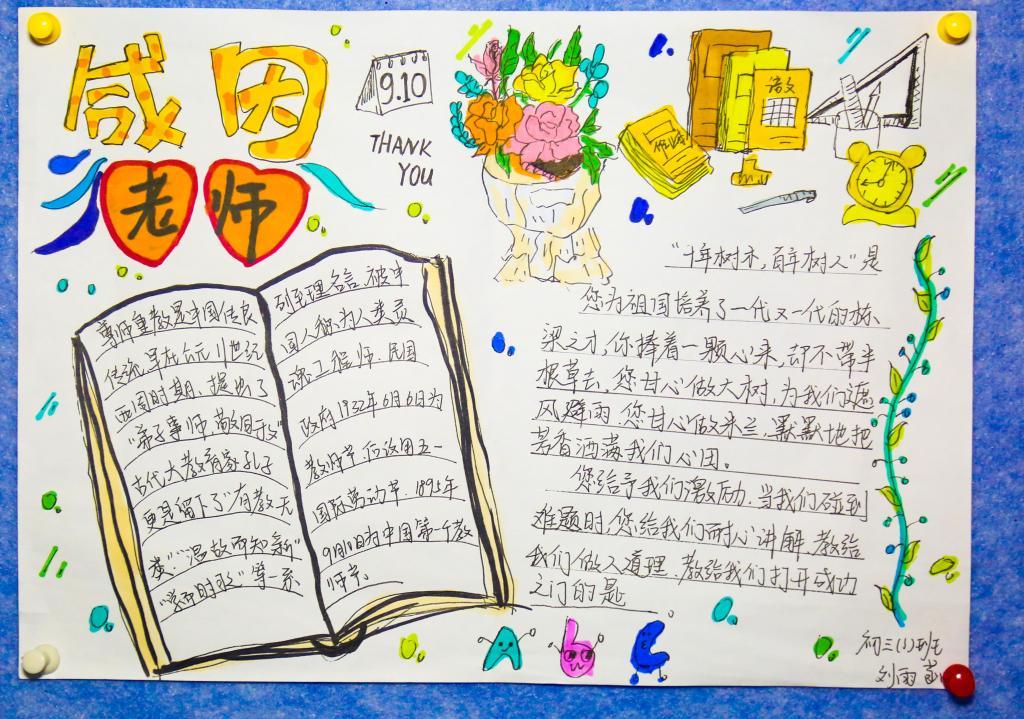 感因
老师
9.10
THANK
YOU
语文
作业
尊师重教是中国传统
传统,早在公元11世纪
西周时期,提出了
"弟子事师,敬同于父"
古代大教育家孔子
更是留下了"有教无
类""温故而知新"
"学而时习之"等一系
列至理名言.被中
国人称为人类灵
魂工程师.民国
政府1932年6月6日为
教师节,后改用五一
国际劳动节.1895年
9月10日为中国第一个教
师节.
"十年树木,百年树人"是
您为祖国培养了一代又一代的栋
梁之才,你捧着一颗心来,却不带半
根草去,您甘心做大树,为我们遮
风避雨.您甘心做米兰,默默地把
芳香洒满我们心田。
您给予我们激励.当我们碰到
难题时.您给我们耐心讲解,教给
我们做人道理.教给我们打开成功
之门的是
A b C
初三(1)班
刘雨